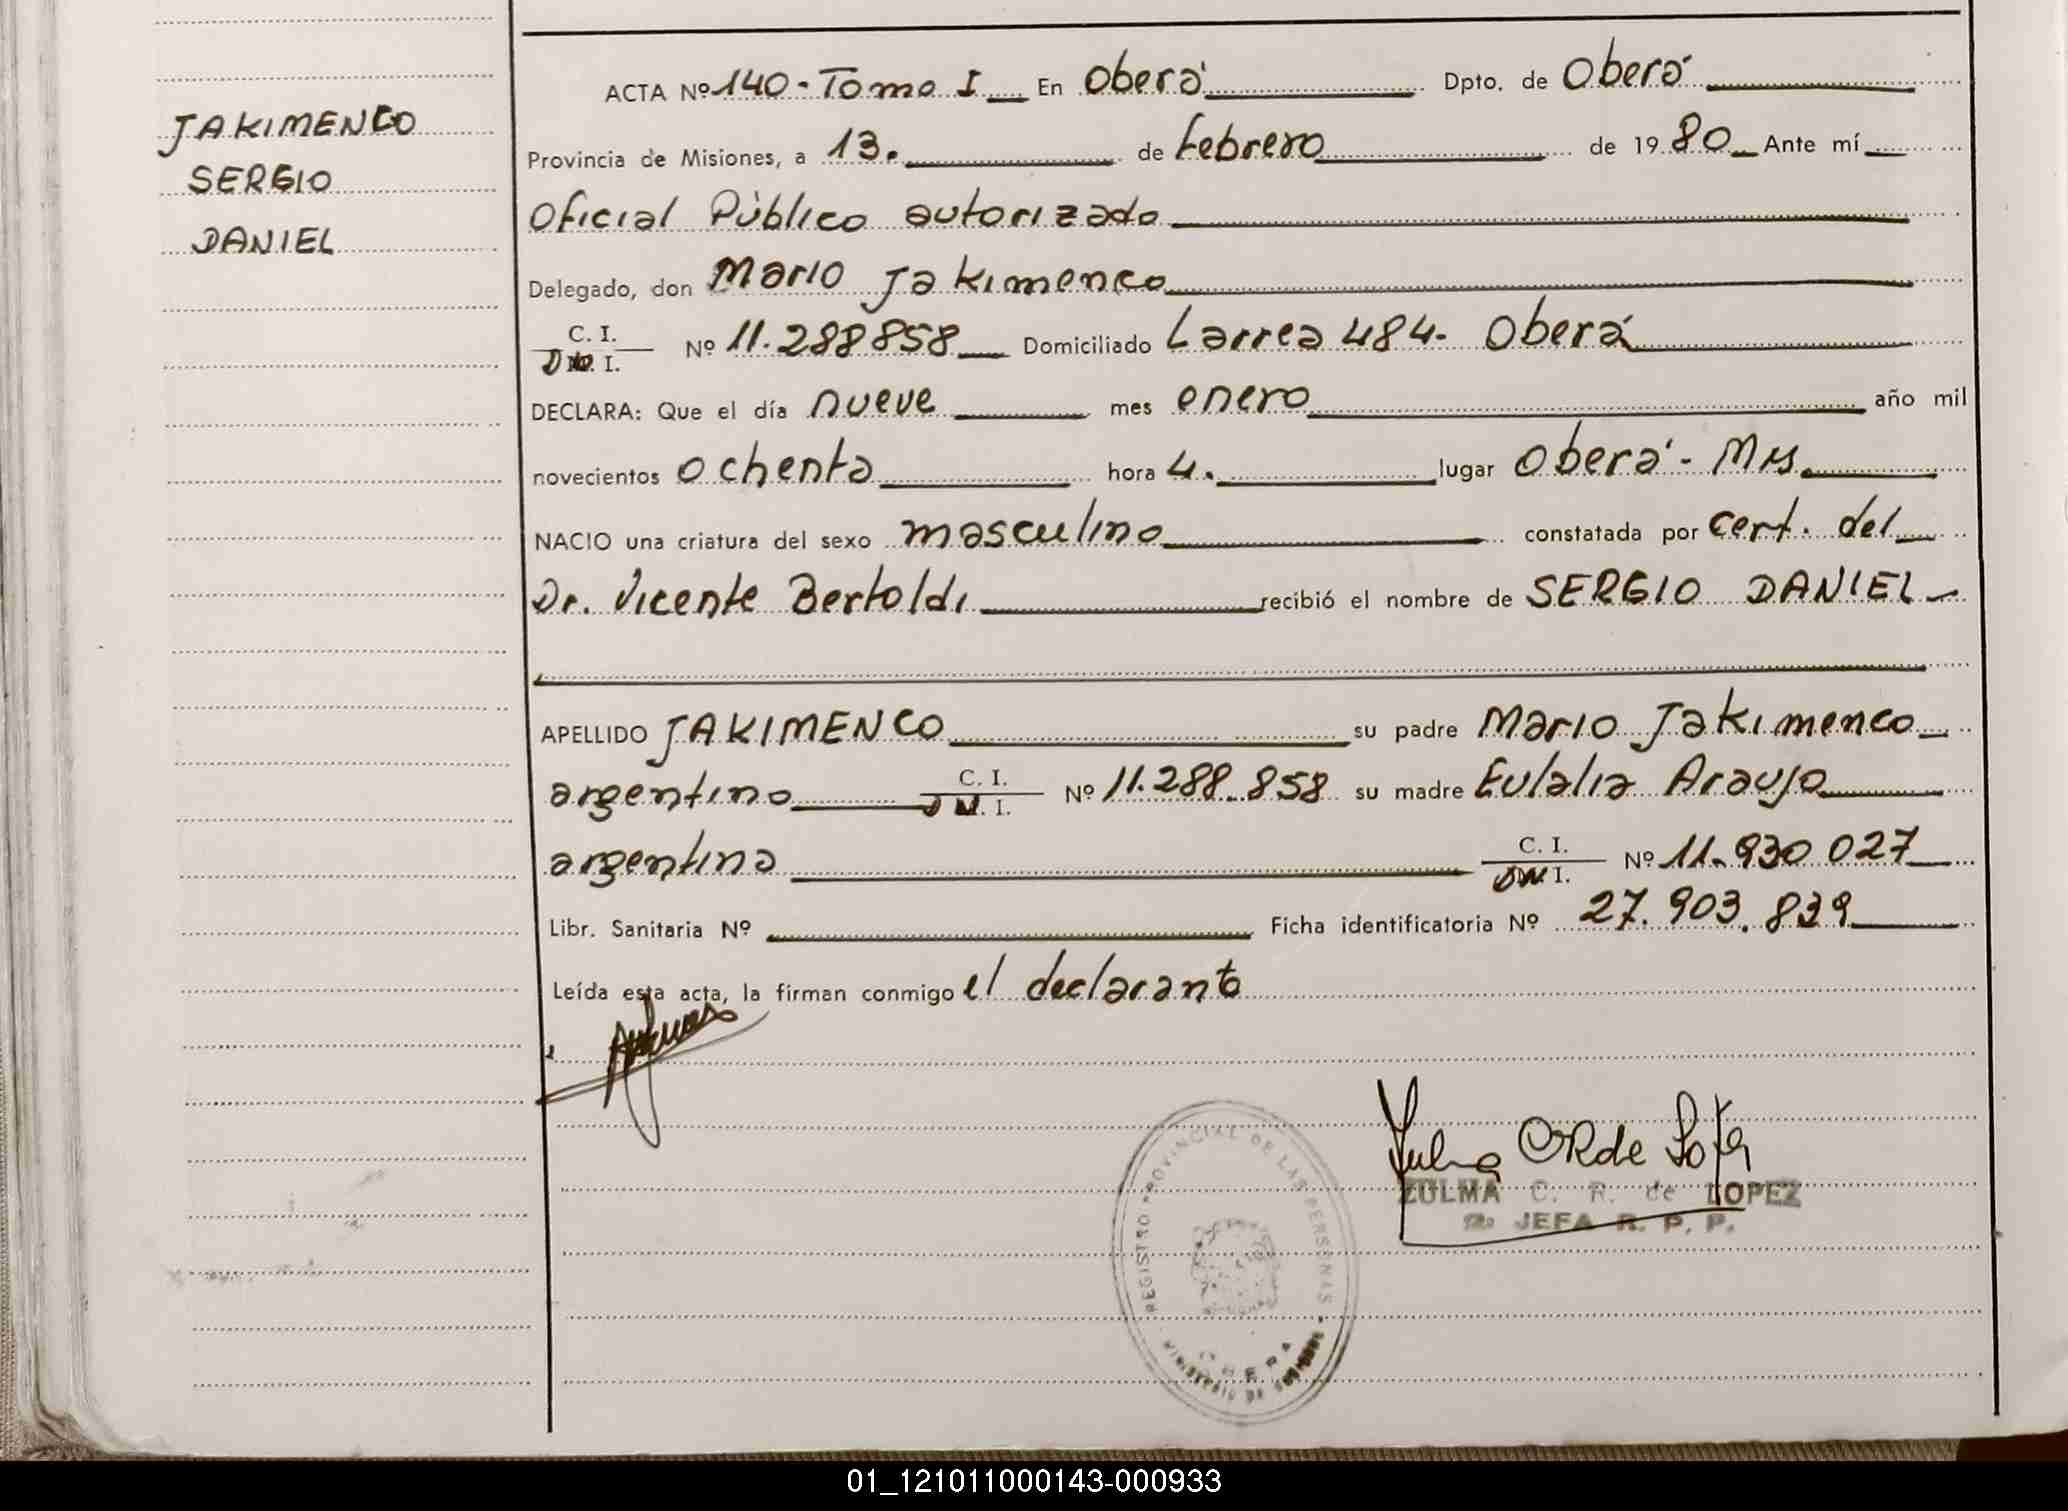 JAKIMENCO
SERGIO
DANIEL
ACTA Nº 140 - Tomo I En Oberá Dpto. de Oberá
Provincia de Misiones, a 13. de Febrero de 1980 Ante mí
Oficial Público autorizado
Delegado, don Mario Jakimenco
C. I.
D.N.I. Nº 11.288858 Domiciliado Larrea 484. Oberá
DECLARA: Que el día nueve mes enero año mil
novecientos ochenta hora 4. lugar Oberá - Mns.
NACIO una criatura del sexo masculino constatada por cert. del
Dr. Vicente Bertoldi recibió el nombre de SERGIO DANIEL
APELLIDO JAKIMENCO su padre Mario Jakimenco
argentino C. I.
D.N.I. Nº 11.288.858 su madre Eulalia Araujo
argentina C. I.
D.N.I. Nº 11.930 027
Libr. Sanitaria Nº Ficha identificatoria Nº 27.903.839
Leída esta acta, la firman conmigo el declarante
ZULMA C. R. de LOPEZ
JEFA R. P. P.
REGISTRO PROVINCIAL DE LAS PERSONAS
OBERA
MINISTERIO DE GOBIERNO
01_121011000143-000933